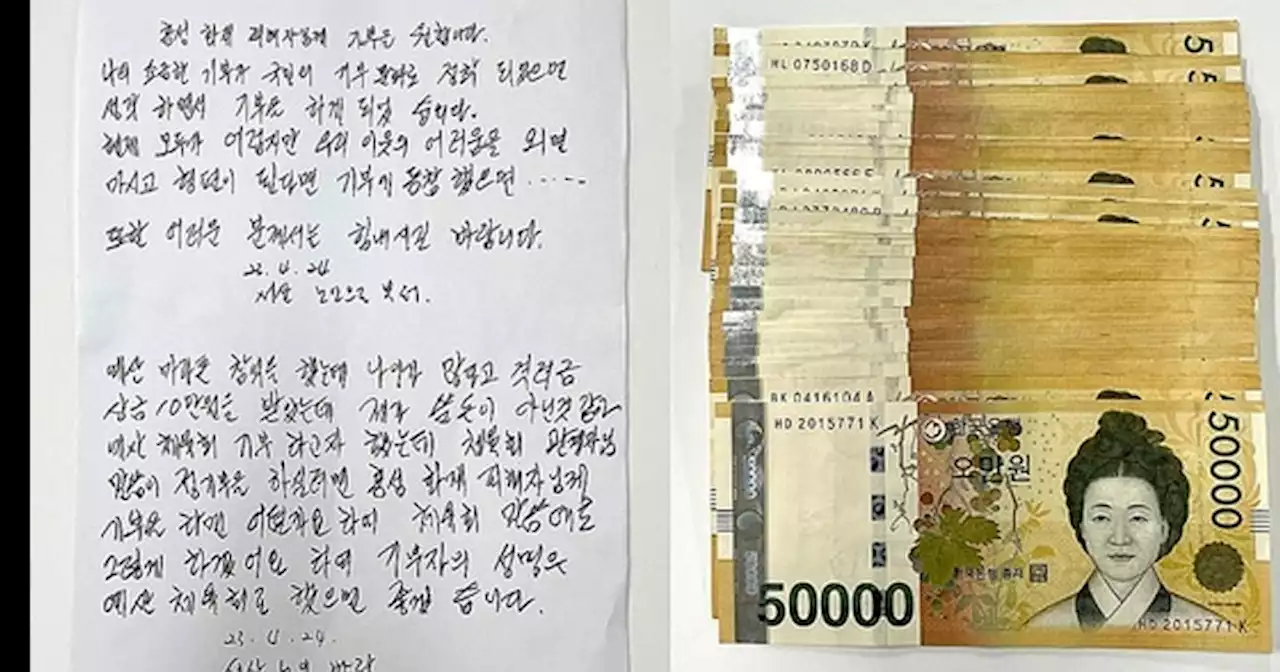 홍성 화재 피해자님께 기부을 원합니다.
나의 소중한 기부가 국민의 기부 문화로 정착 되었으면
생각 하면서 기부을 하게 되었 습니다.
현제 모두가 어렵지만 우리 이웃의 어려움을 외면
마시고 형편이 된다면 기부에 동참 했으면 ......
또한 어려운 분께서는 힘내시길 바랍니다.
23. 4. 24
서산
예산 마라톤 참석을 했는데 나이가 많다고 격려금
상금 10만원을 받았는데 제가 쓸돈이 아닌것 같아
예산 체육회 기부 하고자 했는데 체육회 관계자님
말씀이 기부을 하실려면 홍성 화재 피해자님께
기부을 하면 어떤가요 하며 체육회 말씀에
그렇게 하겠어요 하며 기부자의 성명은
예산 체육회로 했으면 좋겠 습니다.
23. 4. 24.
ML 0750168 D
BK 0416104 A
HD 2015771 K
한국은행
오만원
50000
한국은행 총재
50000
HD 2015771 K